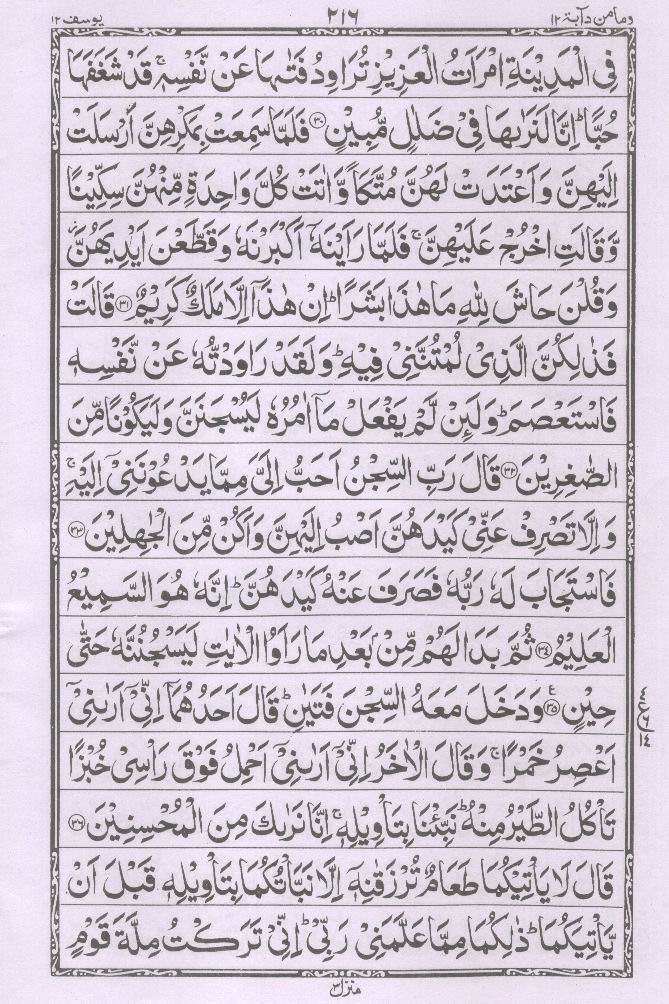 وما من دآبۃ ١٢ ٢١٦ یوسف ١٢
فِی الْمَدِیْنَةِ امْرَاَتُ الْعَزِیْزِ تُرَاوِدُ فَتٰىهَا عَنْ نَّفْسِهٖ ۚ قَدْ شَغَفَهَا
حُبًّا ؕ اِنَّا لَنَرٰىهَا فِیْ ضَلٰلٍ مُّبِیْنٍ ﴿۳۰﴾ فَلَمَّا سَمِعَتْ بِمَكْرِهِنَّ اَرْسَلَتْ
اِلَیْهِنَّ وَ اَعْتَدَتْ لَهُنَّ مُتَّكَاً وَّ اٰتَتْ كُلَّ وَاحِدَةٍ مِّنْهُنَّ سِكِّیْنًا
وَّ قَالَتِ اخْرُجْ عَلَیْهِنَّ ۚ فَلَمَّا رَاَیْنَهٗۤ اَكْبَرْنَهٗ وَ قَطَّعْنَ اَیْدِیَهُنَّ ؗ
وَ قُلْنَ حَاشَ لِلّٰهِ مَا هٰذَا بَشَرًا ؕ اِنْ هٰذَاۤ اِلَّا مَلَكٌ كَرِیْمٌ ﴿۳۱﴾ قَالَتْ
فَذٰلِكُنَّ الَّذِیْ لُمْتُنَّنِیْ فِیْهِ ؕ وَ لَقَدْ رَاوَدْتُّهٗ عَنْ نَّفْسِهٖ
فَاسْتَعْصَمَ ؕ وَ لَىِٕنْ لَّمْ یَفْعَلْ مَاۤ اٰمُرُهٗ لَیُسْجَنَنَّ وَ لَیَكُوْنًا مِّنَ
الصّٰغِرِیْنَ ﴿۳۲﴾ قَالَ رَبِّ السِّجْنُ اَحَبُّ اِلَیَّ مِمَّا یَدْعُوْنَنِیْۤ اِلَیْهِ ۚ
وَ اِلَّا تَصْرِفْ عَنِّیْ كَیْدَهُنَّ اَصْبُ اِلَیْهِنَّ وَ اَكُنْ مِّنَ الْجٰهِلِیْنَ ﴿۳۳﴾
فَاسْتَجَابَ لَهٗ رَبُّهٗ فَصَرَفَ عَنْهُ كَیْدَهُنَّ ؕ اِنَّهٗ هُوَ السَّمِیْعُ
الْعَلِیْمُ ﴿۳۴﴾ ثُمَّ بَدَا لَهُمْ مِّنْۢ بَعْدِ مَا رَاَوُا الْاٰیٰتِ لَیَسْجُنُنَّهٗ حَتّٰى
حِیْنٍ ﴿۳۵﴾ ع وَ دَخَلَ مَعَهُ السِّجْنَ فَتَیٰنِ ؕ قَالَ اَحَدُهُمَاۤ اِنِّیْۤ اَرٰىنِیْۤ
اَعْصِرُ خَمْرًا ۚ وَ قَالَ الْاٰخَرُ اِنِّیْۤ اَرٰىنِیْۤ اَحْمِلُ فَوْقَ رَاْسِیْ خُبْزًا
تَاْكُلُ الطَّیْرُ مِنْهُ ؕ نَبِّئْنَا بِتَاْوِیْلِهٖ ۚ اِنَّا نَرٰىكَ مِنَ الْمُحْسِنِیْنَ ﴿۳۶﴾
قَالَ لَا یَاْتِیْكُمَا طَعَامٌ تُرْزَقٰنِهٖۤ اِلَّا نَبَّاْتُكُمَا بِتَاْوِیْلِهٖ قَبْلَ اَنْ
یَّاْتِیَكُمَا ؕ ذٰلِكُمَا مِمَّا عَلَّمَنِیْ رَبِّیْ ؕ اِنِّیْ تَرَكْتُ مِلَّةَ قَوْمٍ
منزل ۳